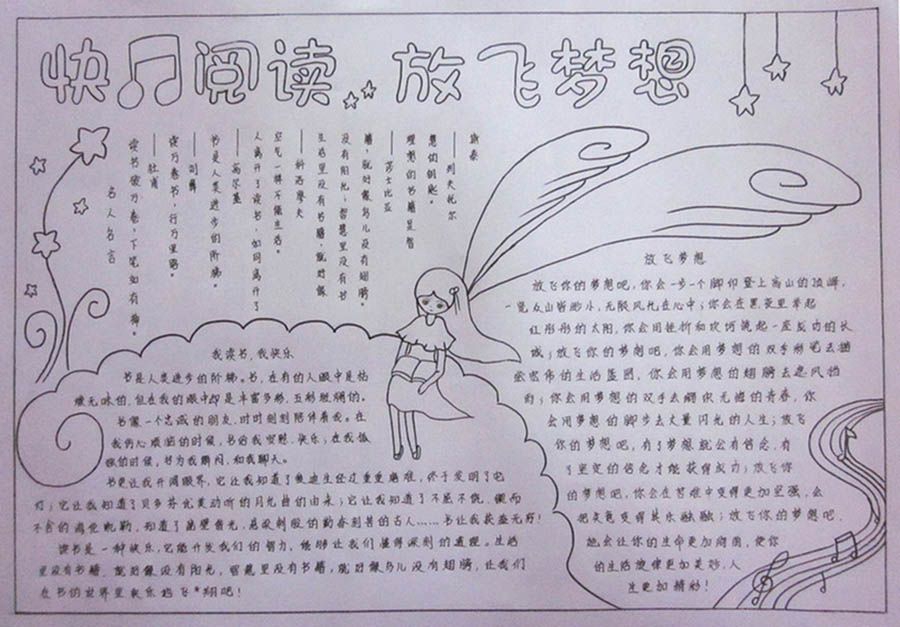 快阅读 放飞梦想
名人名言
读书破万卷，下笔如有神。
——杜甫
读万卷书，行万里路。
——刘彝
书是人类进步的阶梯。
——高尔基
人离开了读书，如同离开了
空气一样不能生活。
——科洛廖夫
生活里没有书籍，就好像
没有阳光；智慧里没有书
籍，就好像鸟儿没有翅膀。
——莎士比亚
理想的书籍是智
慧的钥匙。
——列夫托尔
斯泰
我读书，我快乐
书是人类进步的阶梯。书，在有的人眼中是枯
燥无味的，但在我的眼中却是丰富多彩，五彩斑斓的。
书像一个忠诚的朋友，时时刻刻陪伴着我。在
我伤心烦恼的时候，书给我安慰，快乐；在我孤
独的时候，书为我解闷，和我聊天。
书更让我开阔眼界，它让我知道了奥迪生经过重重磨难，终于发明了电
灯；它让我知道了贝多芬优美动听的月光曲的由来；它让我知道了不屈不饶，
不舍的海伦凯勒，知道了凿壁偷光，悬梁刺股的勤奋刻苦的古人……书让我获益无穷！
读书是一种快乐，它能开发我们的智力，能够让我们懂得深刻的道理。生活
里没有书籍，就好像没有阳光，智慧里没有书籍，就好像鸟儿没有翅膀，让我们
在书的世界里快乐的飞*翔吧！
放飞梦想
放飞你的梦想吧，你会一步一个脚印登上高山的顶峰，
一览众山皆渺小，无限风光在心中；你会在黑夜里举起
红彤彤的太阳，你会用挫折和坎坷浇起一座成功的长
城；放飞你的梦想吧，你会用梦想的双手彩笔去描
绘宏伟的生活蓝图，你会用梦想的翅膀去迎风挡
雨；你会用梦想的双手去编织无悔的青春，你
会用梦想的脚步去丈量闪光的人生；放飞
你的梦想吧，有了梦想就会有信念，有
了坚定的信念才能获得成功；放飞你
的梦想吧，你会在苦难中变得更加坚强，会
把灰色变得其乐融融；放飞你的梦想吧，
她会让你的生命更加绚丽，使你
的生活旋律更加美妙，人
生更加精彩！